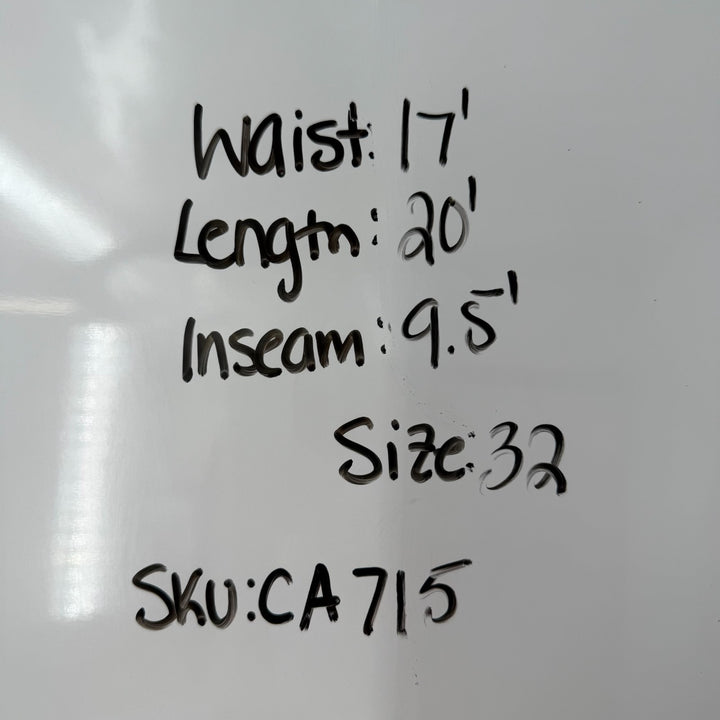 Waist: 17'
Length: 20'
Inseam: 9.5'
Size: 32
SKU: CA715